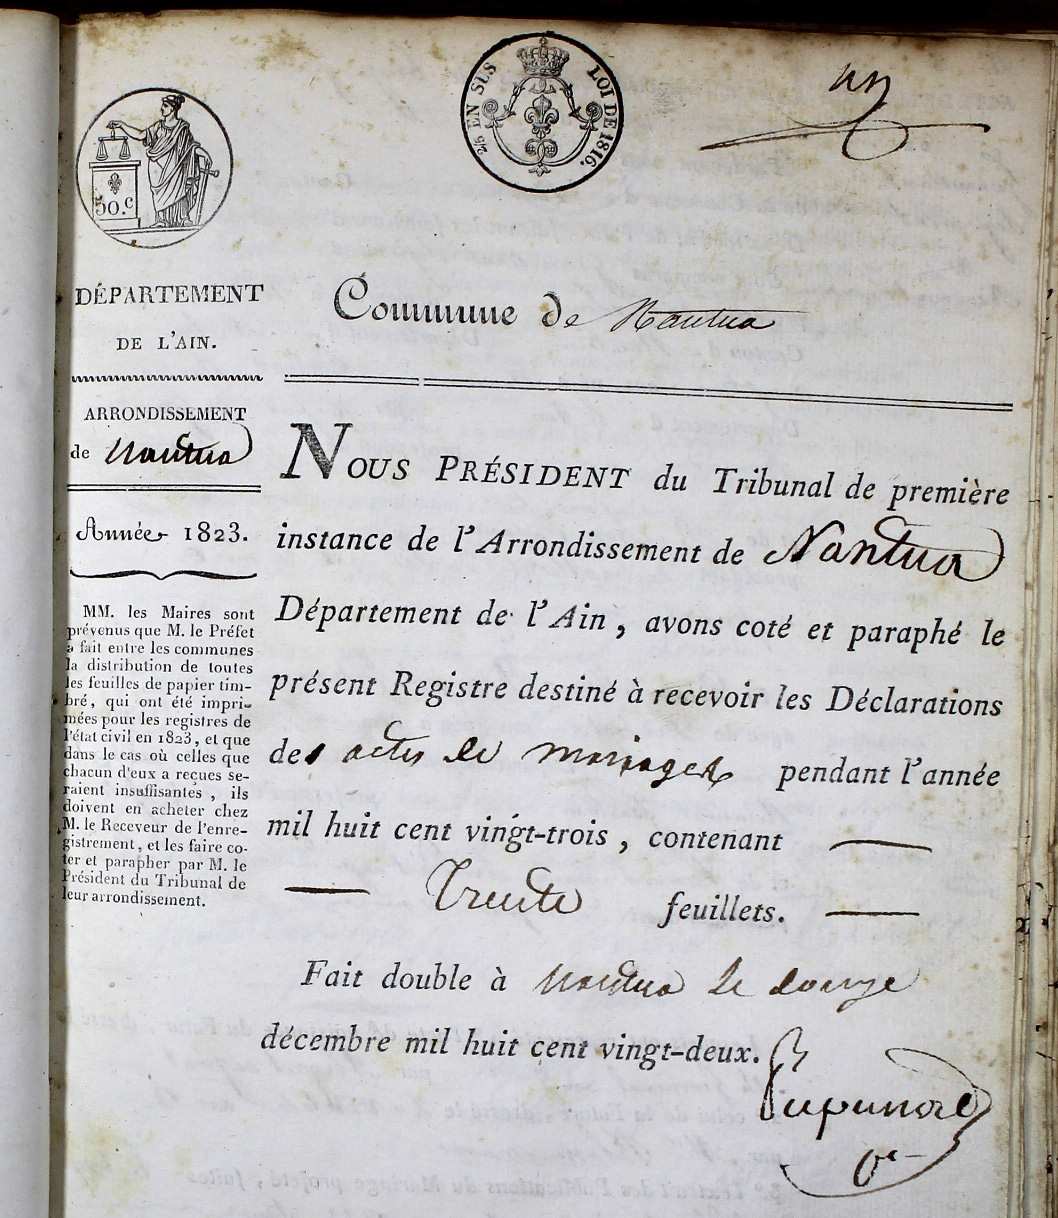 2/5 EN SUS
LOI DE 1816.
un
50.c
DÉPARTEMENT
DE L'AIN.
Commune de Nantua
ARRONDISSEMENT
de Nantua
Année 1823.
MM. les Maires sont
prévenus que M. le Préfet
a fait entre les communes
la distribution de toutes
les feuilles de papier tim-
bré, qui ont été impri-
mées pour les registres de
l'état civil en 1823, et que
dans le cas où celles que
chacun d'eux a reçues se-
raient insuffisantes, ils
doivent en acheter chez
M. le Receveur de l'enre-
gistrement, et les faire co-
ter et parapher par M. le
Président du Tribunal de
leur arrondissement.
NOUS PRÉSIDENT du Tribunal de première
instance de l'Arrondissement de Nantua
Département de l'Ain, avons coté et paraphé le
présent Registre destiné à recevoir les Déclarations
des actes de mariages pendant l'année
mil huit cent vingt-trois, contenant
Trente feuillets.
Fait double à Nantua le douze
décembre mil huit cent vingt-deux.